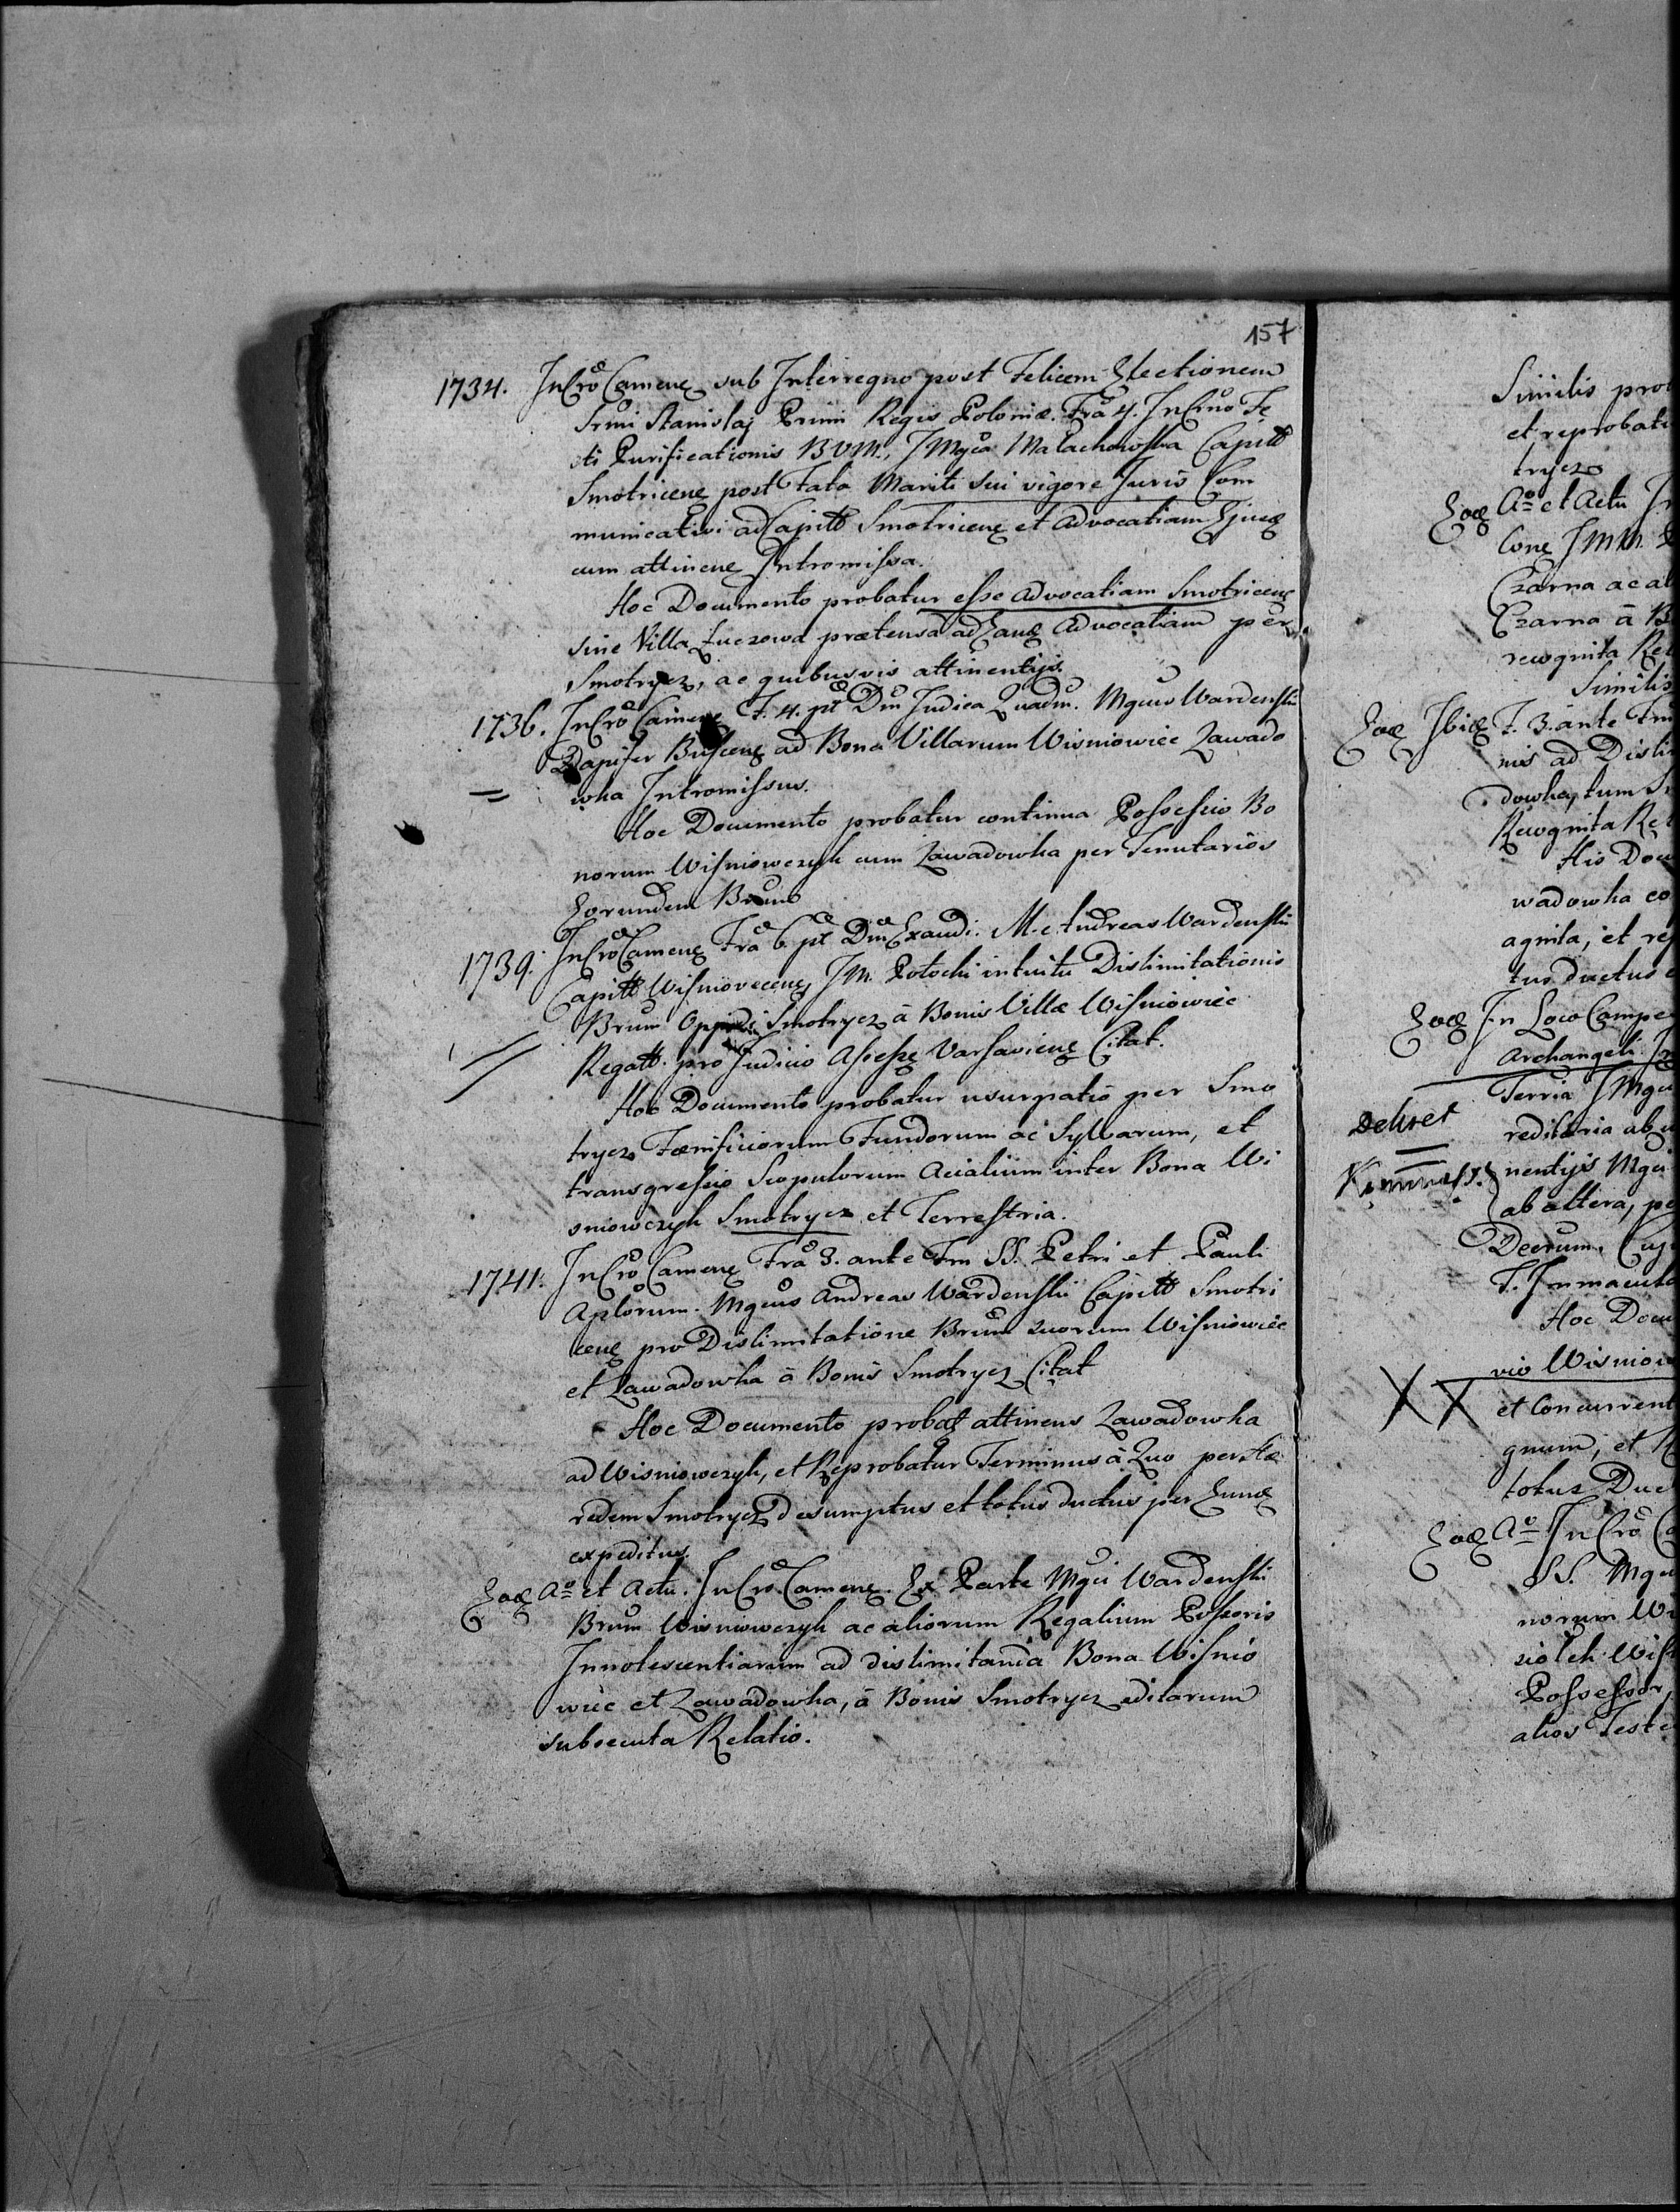 157
1734. In Cro Camene sub Interregno post Felicem Electionem
Srmi Stanislaj Primi Regis Poloniæ. Fra 4. In Crno Fe
sti Purificationis BVM., JMgca Malachowska Capitt
Smotricene post Fata Mariti sui vigore Juris Com
municativi ad Capitt Smotricene et Advocatiam Ejusd
cum attinene Intromissa.
Hoc Documento probatur esse Advocatiam Smotricene
sine Villa Luczowa prætensa ad Eand Advocatiam per
Smotrycz, ac quibusvis attinentijs.
1736. In Cro Camene F. 4. pt Dm Judica Quadm. Mgcus Wardenski
Dapifer Buscene ad Bona Villarum Wisniowiec Zawado
wka Intromissus.
Hoc Documento probatur continua Possessio Bo
norum Wisniowczyk cum Zawadowka per Tenutarios
Eorundem Brum
1739. In Cro Camene Fra 6 pt Dm Exaudi. M. Andreas Wardenski
Capitt Wisniovecene, JM. Potocki intuitu Dislimitationis
Brum Oppidi Smotrycz à Bonis Villæ Wisniowiec
Regatt. pro Judicio Assesse Varsaviene Citat.
Hoc Documento probatur usurpatio per Smo
trycz Fœnificiorum Fundorum ac Sylvarum, et
transgressio Scopulorum Acialium inter Bona Wi
sniowczyk Smotrycz et Terrestria.
1741. In Cro Camene Fra 3. ante Fm SS. Petri et Pauli
Aplorum. Mgcus Andreas Wardenski Capitt Smotri
cene pro Dislimitatione Brum suorum Wisniowiec
et Zawadowka à Bonis Smotrycz Citat
Hoc Documento probat attinens Zawadowka
ad Wisniowczyk, et Reprobatur Terminus à Quo per Hæ
redem Smotrycz desumptus et totus ductus per Eund
expeditus.
Eod Ao et Actu. In Cro Camene. Ex Parte Mgci Wardenski
Brum Wisniowczyk ac aliorum Regalium Possoris
Innotescentiarum ad dislimitanda Bona Wisnio
wiec et Zawadowka, à Bonis Smotrycz editarum
subsecuta Relatio.
Similis pro
et reprobat
trycz
Eod Ao et Actu In
Cone JMM.
Czarna ac al
Czarna à B
recognita Rel
Similis
Eod Ibid F. 3. ante Fm
nis ad Disli
dowka, tum S
Recognita Rel
His Docu
wadowka co
agnita, et re
tus ductus
Eod In Loco Campe
Archangeli
Terria JMgc
Dekret
reditaria ab
nentijs Mgci
ab altera, pe
Decrum. Cuj
F. Immacula
Hoc Docu
vio Wisniow
X X et Concurrent
gnum, et
totus Duc
Eod Ao In Cro Ca
SS. Mgc
norum Wi
siołek Wis
Possessor,
alios Teste